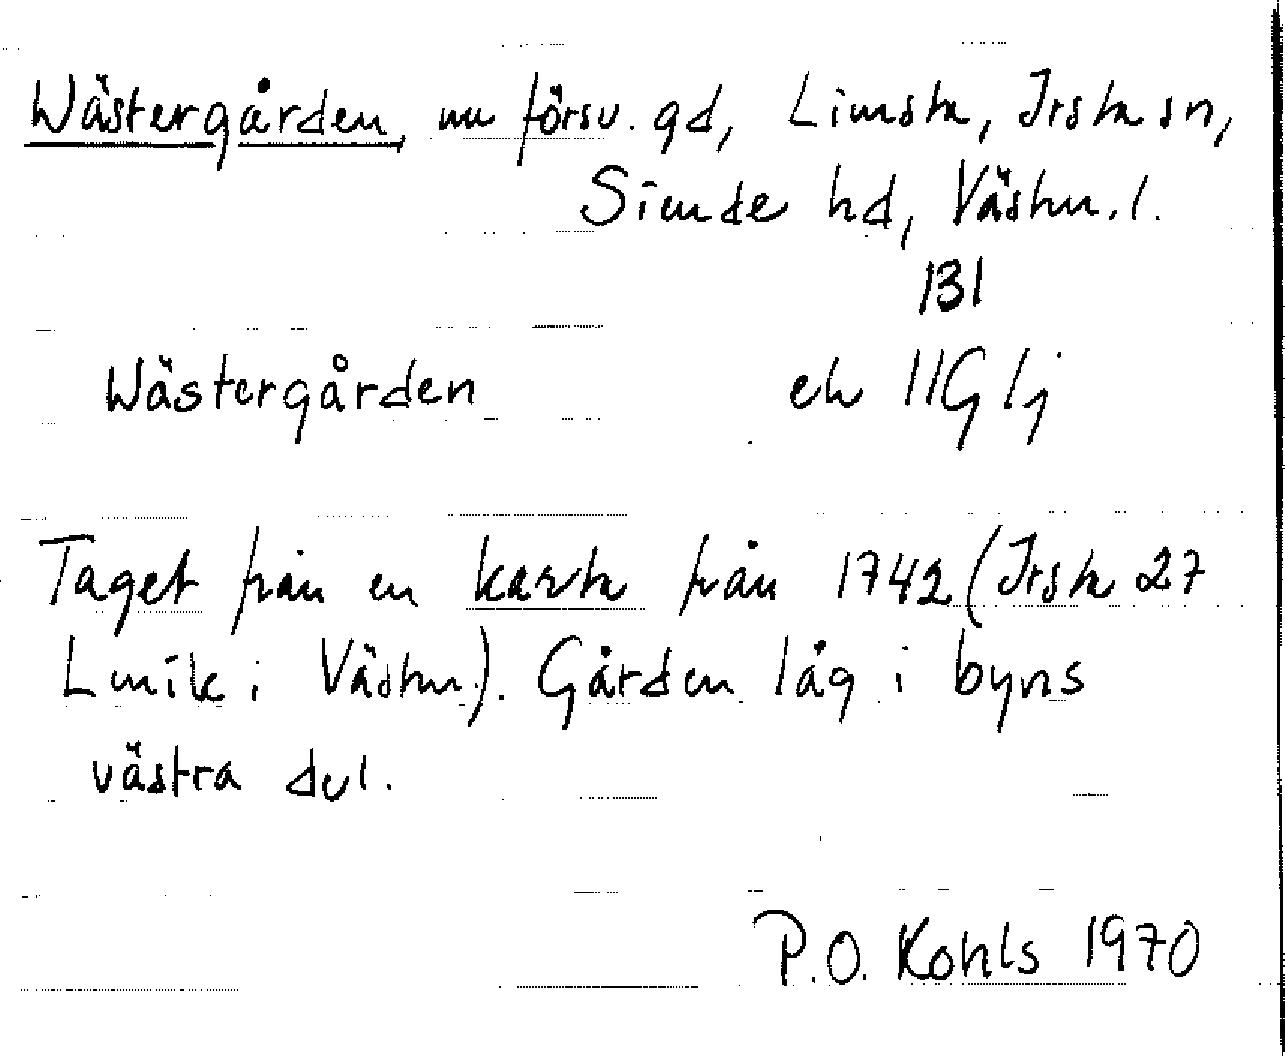 Wästergården, nu försv. gd, Limsta, Irsta sn,
Siende hd, Västm. l.
131
Wästergården ek 11G 1j
Taget från en karta från 1742 (Irsta 27
Lmfk i Västm.). Gården låg i byns
västra del.
P.O. Kohls 1970